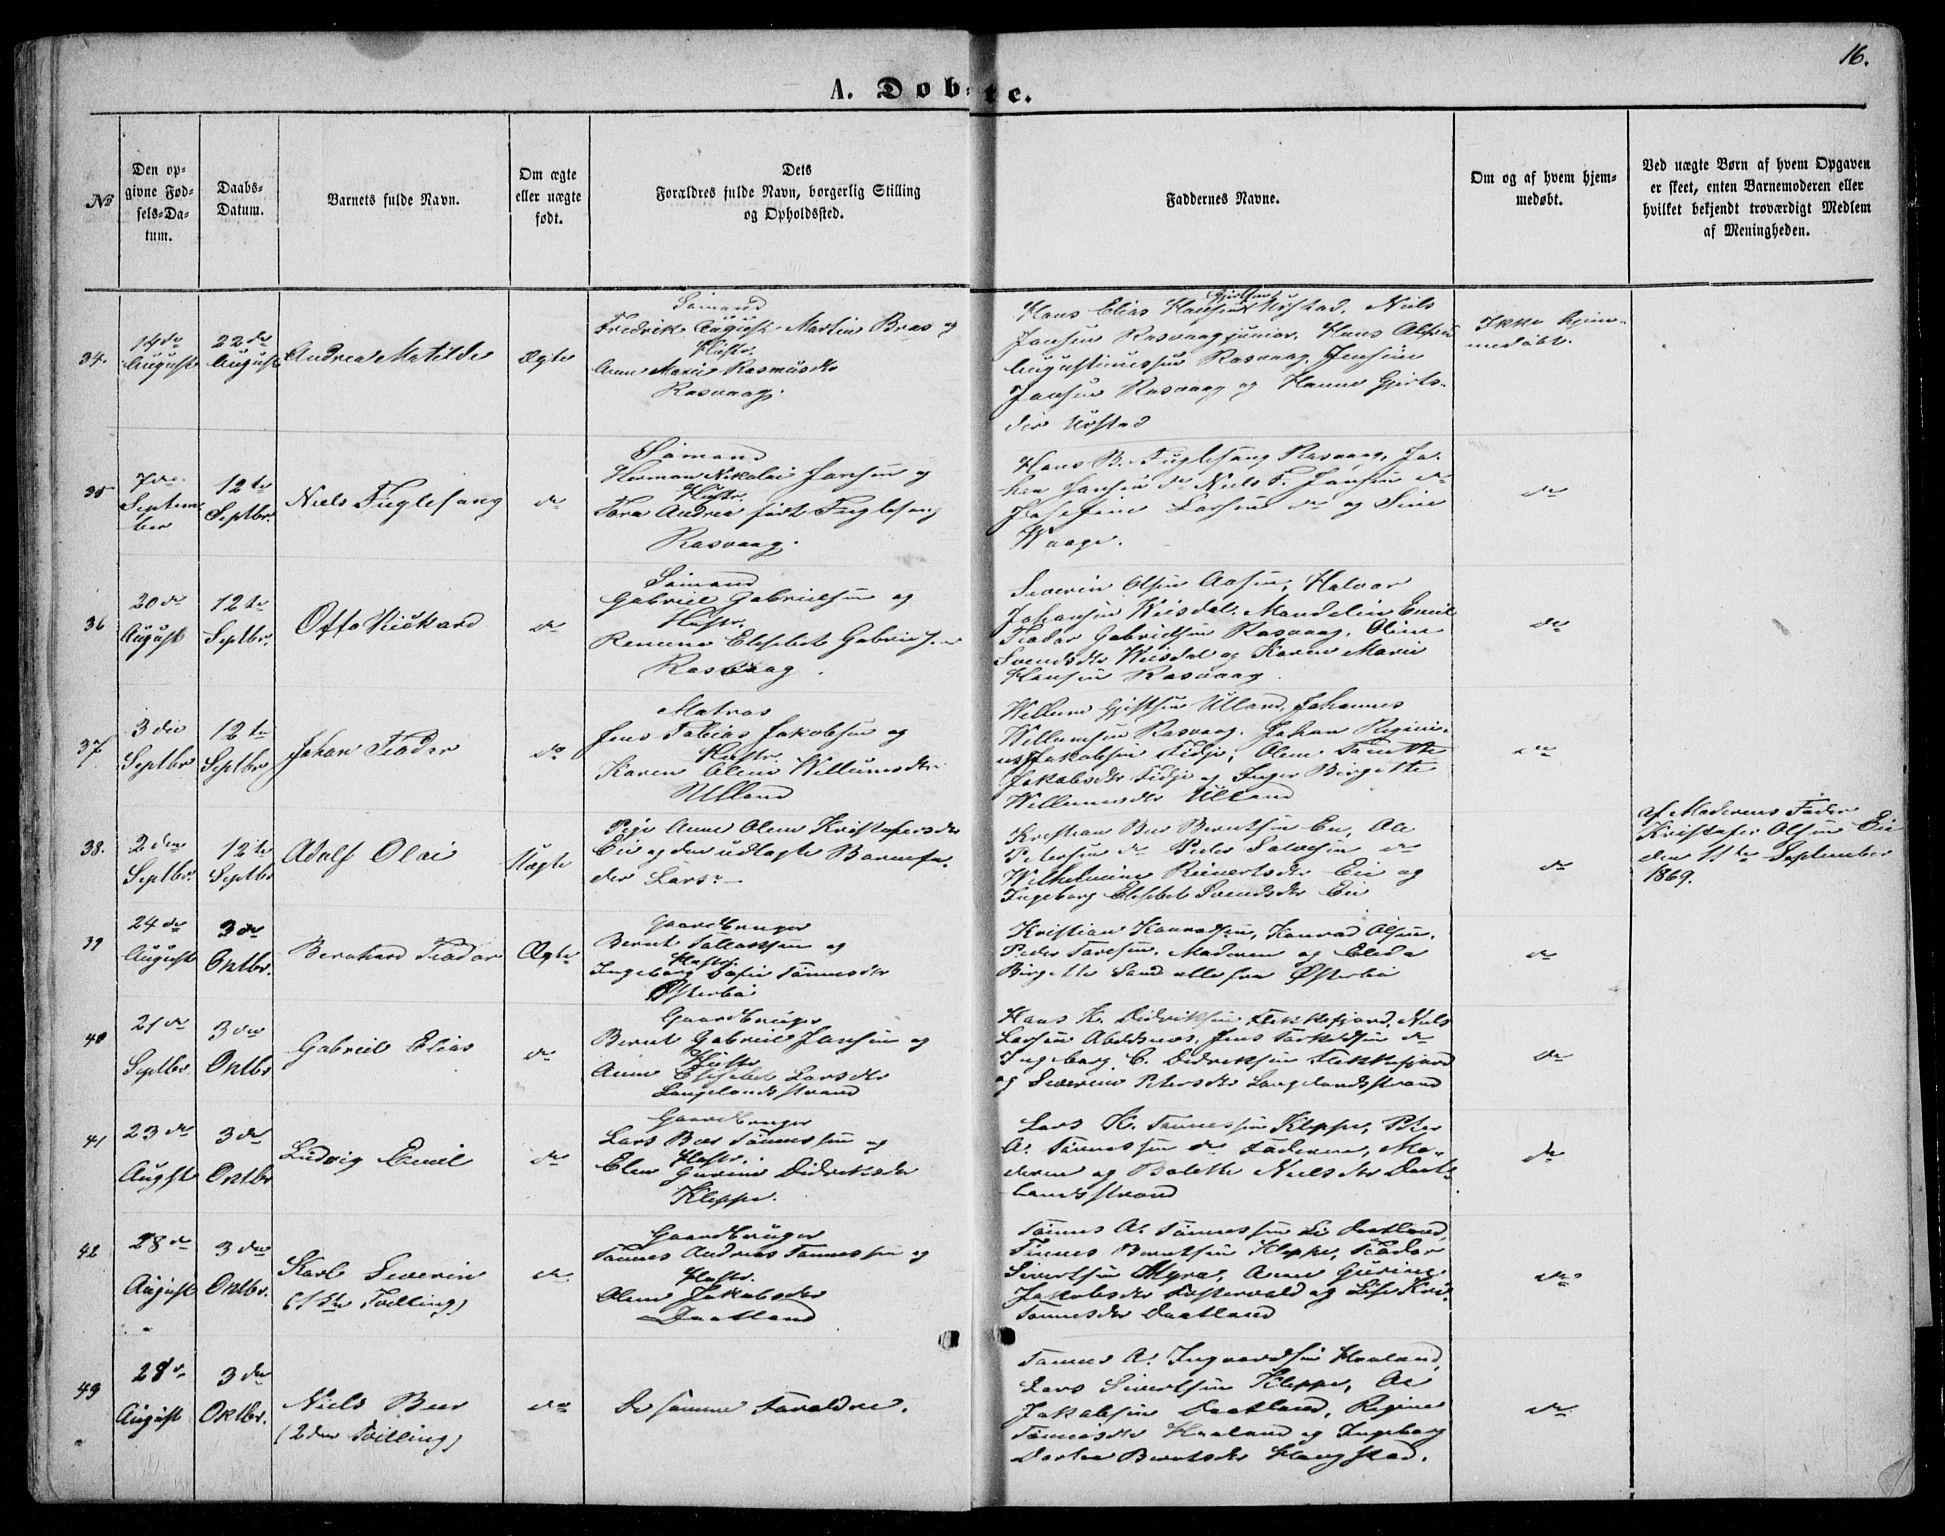 16.
A. Døbte.
No
Den op-
givne Fød-
sels-Da-
tum.
Daabs-
Datum.
Barnets fulde Navn.
Om ægte
eller uægte
født.
Dets
Forældres fulde Navn, borgerlig Stilling
og Opholdssted.
Faddernes Navne.
Om og af hvem hjem-
medøbt.
Ved uægte Børn af hvem Opgaven
er skeet, enten Barnemoderen eller
hvilket bekjendt troværdigt Medlem
af Meningheden.
34.
14de
August
22de
August
Andrea Matilde
Ægte
Sømand
Fredrik August Martin Bras og
Hustr.
Anne Marie Rasmusdtr
Rasvaag.
Hans Elias Hansen Urstad, Niels
Jansen Rasvaag junior, Hans Olsen
Augustinussen Rasvaag, Jensine
Jansen Rasvaag og Hanne Gjerts-
dtr Urstad
Ikke hjem-
medøbt.
35
7de
Septem-
ber
12te
Septbr.
Niels Fuglesang
do
Sømand
Herman Nikolai Jansen og
Hustr.
Tora Andrea født Fuglesang
Rasvaag.
Hans B. Fuglesang Rasvaag, Jo-
han Jansen do Niels F. Jansen do
Josefine Larsen do og Sine
Waage.
do
36
20de
August
12te
Septbr.
Otto Rickard
do
Sømand
Gabriel Gabrielsen og
Hustr.
Ramine Elesebet Gabrielsen
Rasvaag.
Severin Olsen Aasen, Halvor
Johansen Veisdal, Mandelin Emil
Teodor Gabrielsen Rasvaag, Oline
Svendsdtr Veisdal og Karen Marie
Hansen Rasvaag
do
37
3die
Septbr
12te
Septbr
Johan Teodor
do
Matros
Jens Tobias Jakobsen og
Hustr.
Karen Olene Willumsdtr
Ulland
Willum Gjertsen Ulland, Johannes
Willumsen Rasvaag, Johan Regini-
us Jakobsen Fidje, Olene Tomette
Jakobsdtr Fidje og Inger Birgette
Willumsdtr Ulland
do
38.
2den
Septbr.
12te
Septbr
Adolf Olai
Uægte
Pige Anne Olene Kristofersdtr
Eie og den udlagte Barnefa-
der Lars
Kristian Beer Berntsen Eie, Ole
Petersen do Peder Salvesen do
Wilhelmine Reinertsdtr Eie og
Ingeborg Elesebet Svendsdtr Eie
do
af Moderens Fader
Kristofer Olsen Eie
den 11te September
1869.
39
24de
August
3de
Oktbr.
Bernhard Teodor
Ægte
Gaardbruger
Bernt Tollaksen og
Hustr.
Ingeborg Sofie Tønnesdtr
Østerbø
Kristian Konradsen, Konrad Olsen,
Peder Taresen, Moderen og Elida
Birgette Sand alle fra Østerbø
do
40
21de
Septbr
3die
Oktbr
Gabriel Elias
do
Gaardbruger
Bernt Gabriel Jansen og
Hustr.
Anne Elesebet Larsdtr
Langelandsstrand
Hans K. Didriksen Flekkefjord, Niels
Larsen Abelsnes, Jens Torkeldsen do
Ingeborg C. Didriksen Flekkefjord
og Severine Petersdtr Langelandsstrand
do
41
23de
Augst
3de
Oktbr
Ludvig Emil
do
Gaardbruger
Lars Beer Tønnessen og
Hustr.
Elen Gurine Didriksdtr
Kleppe.
Lars K. Tønnessen Kleppe, Peter
A. Tønnessen do Faderen, Mo-
deren og Bolette Nielsdtr Daat-
landsstrand
do
42
28de
August
3die
Oktbr.
Karl Severin
(1ste Tvilling)
do
Gaardbruger
Tønnes Andreas Tønnessen og
Hustr.
Olene Jakobsdtr
Daatland
Tønnes A. Tønnessen Daatland,
Tønnes Berntsen Kleppe, Teodor
Sivertsen Myra, Anne Gurine
Jakobsdtr og Lise Kri-
Tønnesdtr Daatland
do
43
28de
August
3de
Oktbr.
Niels Beer
(2den Tvilling)
do
De samme Forældre.
Tønnes A. Ingvardsen Haaland,
Lars Sivertsen Kleppe, Ole
Jakobsen Daatland, Regine
Tønnesdtr Haaland og Ingeborg
Dortea Berntsdtr Haugstad.
do